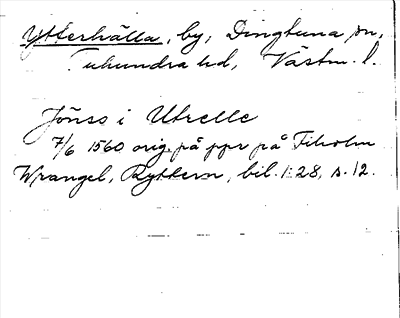 Ytterhälla, by, Dingtuna sn,
Tuhundra hd, Västm. l.
Jönss i Utrelle
7/6 1560 orig. på ppr på Tiholm
Wrangel, Ryttern, bil. 1:28, s. 12.